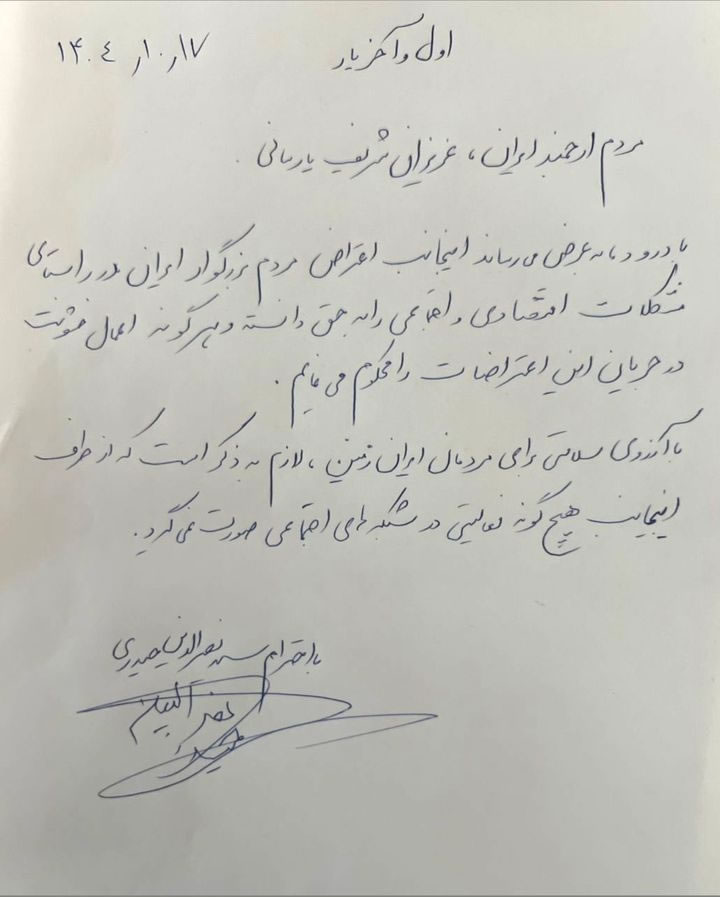 اول و آخر یار
۱۴۰۴/۱۰/۱۷
مردم ارجمند ایران، عزیزان شریف یارسانی
با درود ... به عرض می‌رساند اینجانب اعتراض مردم بزرگوار ایران در راستای
مشکلات اقتصادی و اجتماعی را به حق دانسته و هر گونه اعمال خشونت
در جریان این اعتراضات را محکوم می نمایم.
با آرزوی سلامتی برای مردمان ایران زمین، لازم به ذکر است که از طرف
اینجانب هیچ گونه فعالیتی در شبکه های اجتماعی صورت نمی گیرد.
با احترام سید نصرالدین حیدری